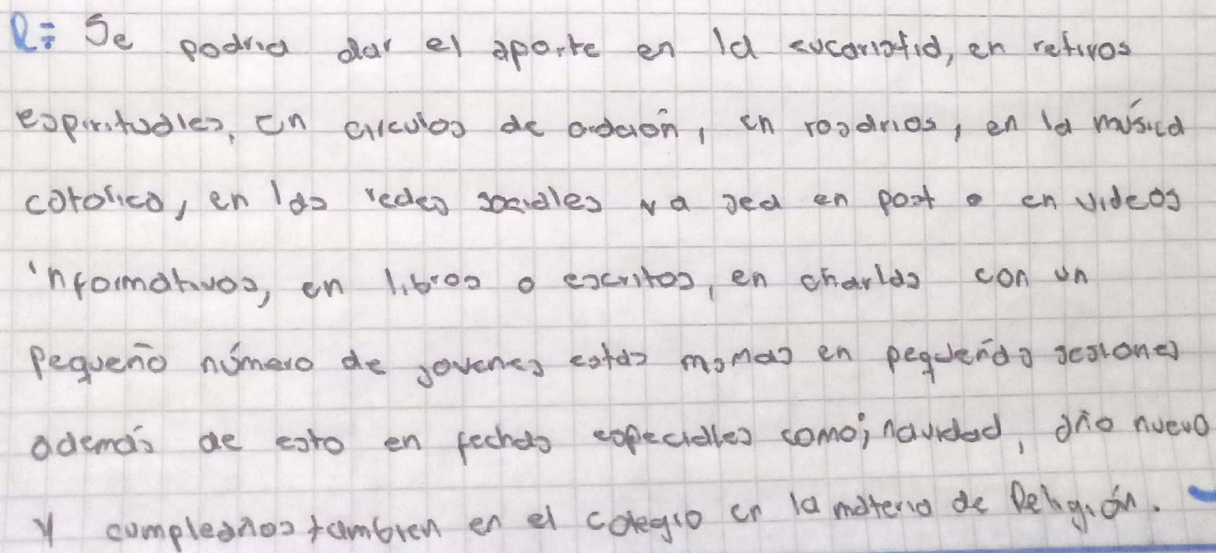 R= Se podria dar el aporte en la eucaristia, en retiros
espirituales, en circulos de oración, en rosarios, en la música
catolica, en las redes sociales ya sea en post o en videos
informativos, en libros o escritos, en charlas con un
pequeño número de jovenes estas mismas en pequeñas sesiones
además de esto en fechas especiales como; navidad, año nuevo
y cumpleaños tambien en el colegio en la materia de Religión.